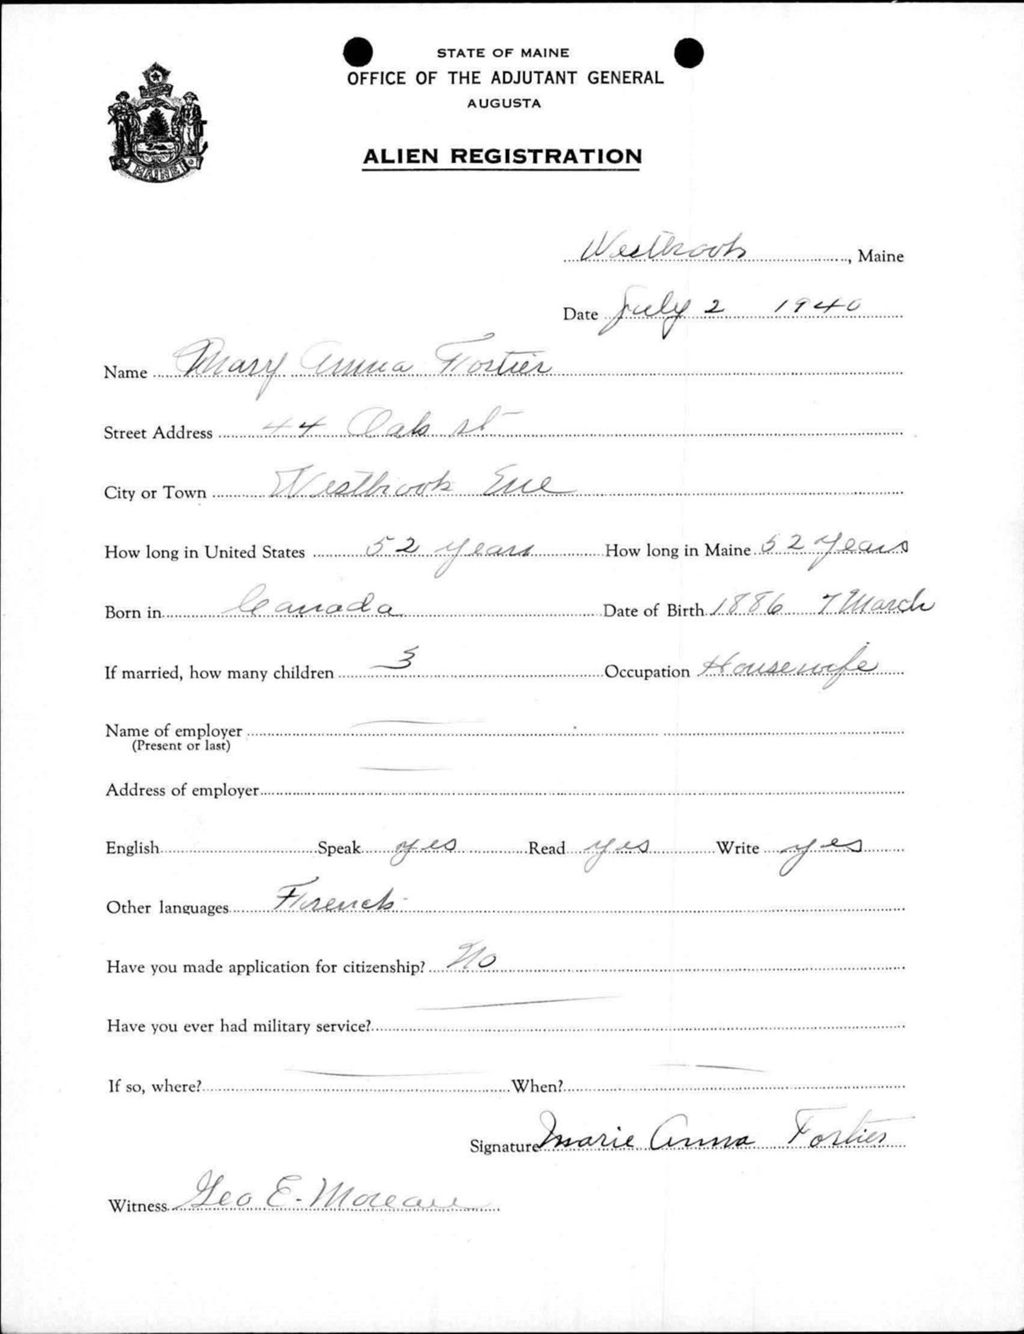 STATE OF MAINE
OFFICE OF THE ADJUTANT GENERAL
AUGUSTA
ALIEN REGISTRATION
MAINE
Westbrook, Maine
Date July 2 1940
Name Mary Anna Fortier
Street Address 44 Oak st
City or Town Westbrook Me
How long in United States 52 years How long in Maine 52 years
Born in Canada Date of Birth 1886 7 March
If married, how many children 3 Occupation Housewife
Name of employer
(Present or last)
Address of employer
English Speak yes Read yes Write yes
Other languages French
Have you made application for citizenship? No
Have you ever had military service?
If so, where? When?
Signature Marie Anna Fortier
Witness Geo E. Moreau